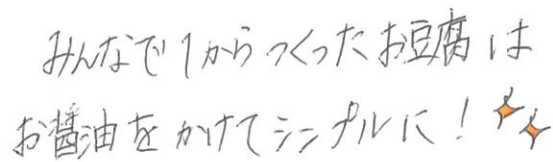 みんなで1からつくったお豆腐は
お醤油をかけてシンプルに！